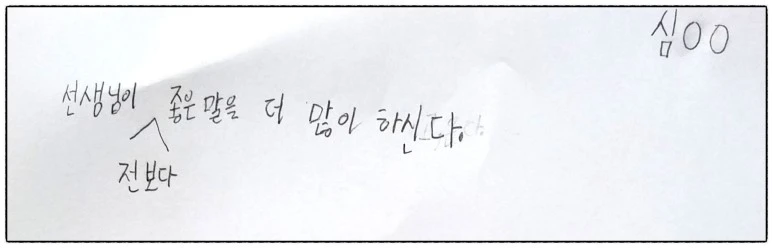 심OO
선생님이 좋은말을 더 많이 하신다.
전보다